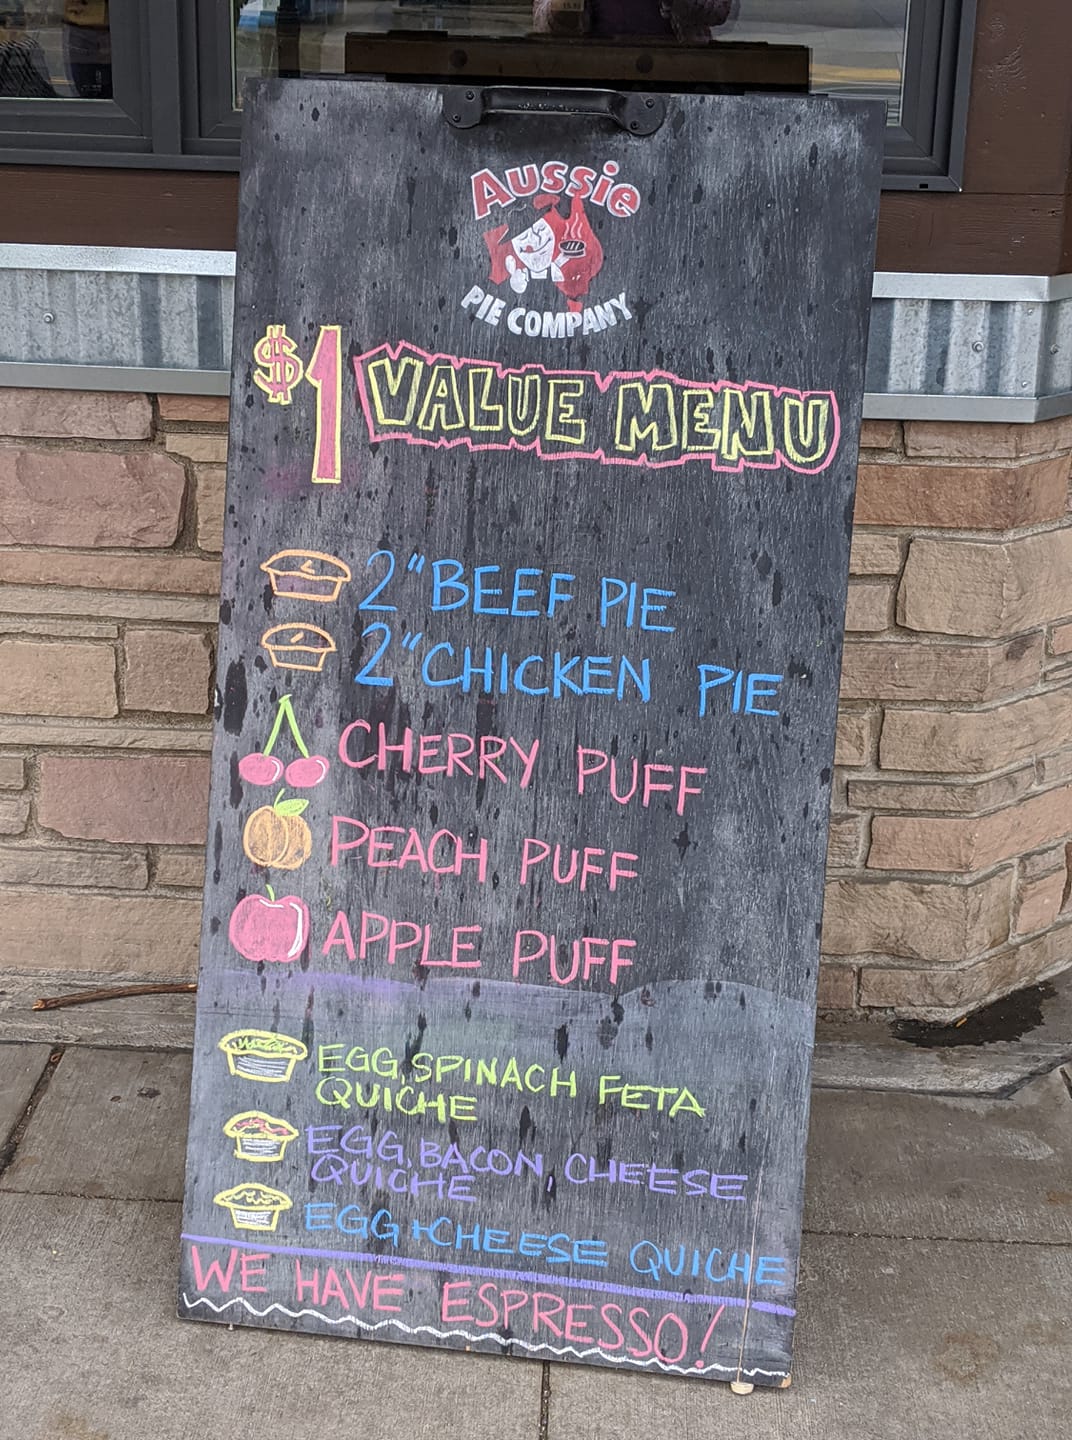 Aussie
PIE COMPANY
$1 VALUE MENU
2" BEEF PIE
2" CHICKEN PIE
CHERRY PUFF
PEACH PUFF
APPLE PUFF
EGG, SPINACH FETA
QUICHE
EGG, BACON, CHEESE
QUICHE
EGG + CHEESE QUICHE
WE HAVE ESPRESSO!